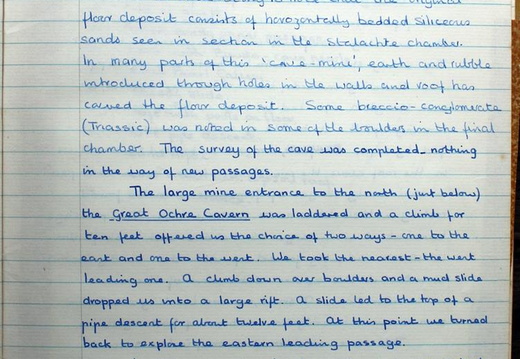 floor deposit consists of horozontally bedded siliceous
sands seen in section in the Stalactite chamber.
In many parts of this 'cave-mine', earth and rubble
introduced through holes in the walls and roof has
covered the floor deposit. Some breccio-conglomerate
(Triassic) was noted in some of the boulders in the final
chamber. The survey of the cave was completed - nothing
in the way of new passages.
The large mine entrance to the north (just below)
the Great Ochre Cavern was laddered and a climb for
ten feet offered us the choice of two ways - one to the
east and one to the west. We took the nearest - the west
leading one. A climb down over boulders and a mud slide
dropped us into a large rift. A slide led to the top of a
pipe descent for about twelve feet. At this point we turned
back to explore the eastern leading passage.